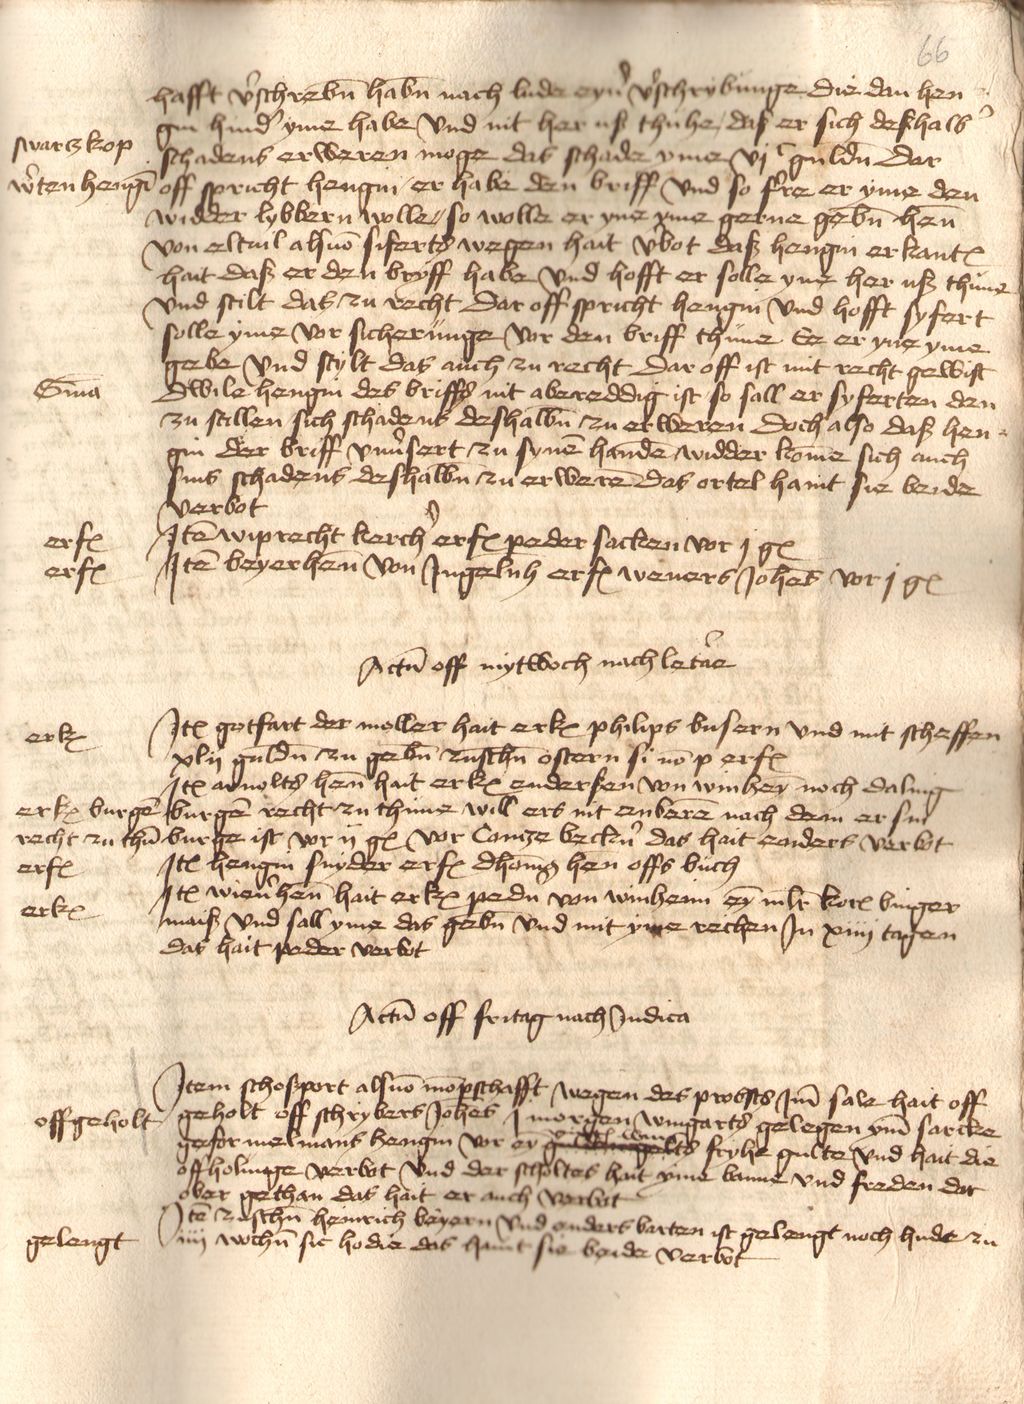 66
hafft v'schrebn habn nach lude eyn' v'schrybunge die dan hen
gin hind' yme habe und nit her uß thuhe / daß er sich deßhalb
swarczkop
schadens erweren moge das schade yme vj c guldn Dar
w'tenhengin
off spricht hengin er habe den briff und so fre er yme den
widder lybbern wolle / so wolle er yne yme gerne gebn Hen
von eltuil als von siferts wegen hait v'bot daß hengin erkant
hait daß er den bryff habe und hofft er solle yne her uß thune
und stilt das zu recht Dar off spricht hengin und hofft syfert
solle yme vor sicherunge vor den briff thune Ee er yne yme
gebe und stylt das auch zu recht Dar off ist mit recht gewist
S'nia
Dwile hengin des briffs nit abereddig ist so sall er syferten den
zu stillen sich schadens deshalbn zu erweren Doch also daß hen=
gin der briff unv'sert zu synen handen widder kome sich auch
sins schadens deshalbn zu erweren Das ortel haint sie beide
verbot
erf
Item wiprecht kerch' erf peder sacken vor j g
erf
Item beyerhenn von Ingelnh erf weners Johes vor j g
Actu off mytwoch nach letare
erk
It gotfart der moller hait erk philips busern und mit scheffen
xlij guldn zu gebn zuschn ostern si non p erf
It arnolts henn hait erk endersen von winhey noch dalung
erk burgen
burgen recht zu thune will ers nit enberen nach dem er sin
recht zu thun
burge ist vor ij g vor Contze beckn' das hait enders verbot
erf
It hengin snyder erf dhomg hen offs buch
erk
It wien'henn hait erk pedn von winheim eyn mlr korn binger
maiß und sall yme das gebn und mit yme rechen In xiiij tagen
das hait peder verbot
Actu off fritag nach Judica
Item schoßport als von mompschafft wegen des probsts Im sale hait off
offgeholt
geholt off schrybers Johes j morgen wingarts gelegen ym sarcke
gefor melmans hengin vor ey gulte und hait die
offholunge verbot und der scholtes hait yme banne und freden dar
ober gethan das hait er auch verbot
Item zuschn heinrich beyern und enders barten ist gelengt noch hude zu
gelengt
iiij wochn sic hodie das haint sie beide verbot